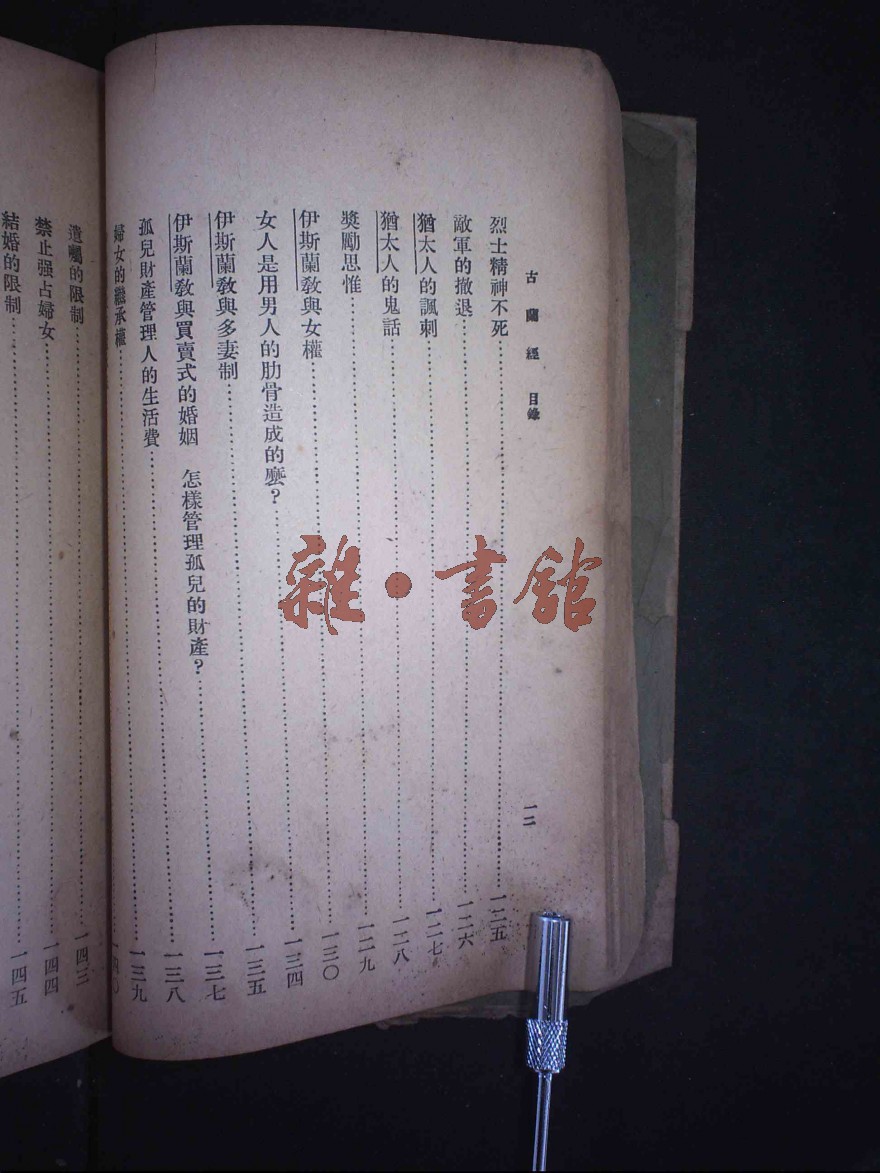 古蘭經 目錄 一二
烈士精神不死……一二五
敵軍的撤退……一二六
猶太人的諷刺……一二七
猶太人的鬼話……一二八
獎勵思惟……一二九
伊斯蘭教與女權……一三〇
女人是用男人的肋骨造成的麼?……一三四
伊斯蘭教與多妻制……一三五
伊斯蘭教與買賣式的婚姻 怎樣管理孤兒的財產?……一三七
孤兒財產管理人的生活費……一三八
婦女的繼承權……一三九
一四〇
遺囑的限制……一四三
禁止强占婦女……一四四
結婚的限制……一四五
雜·書館